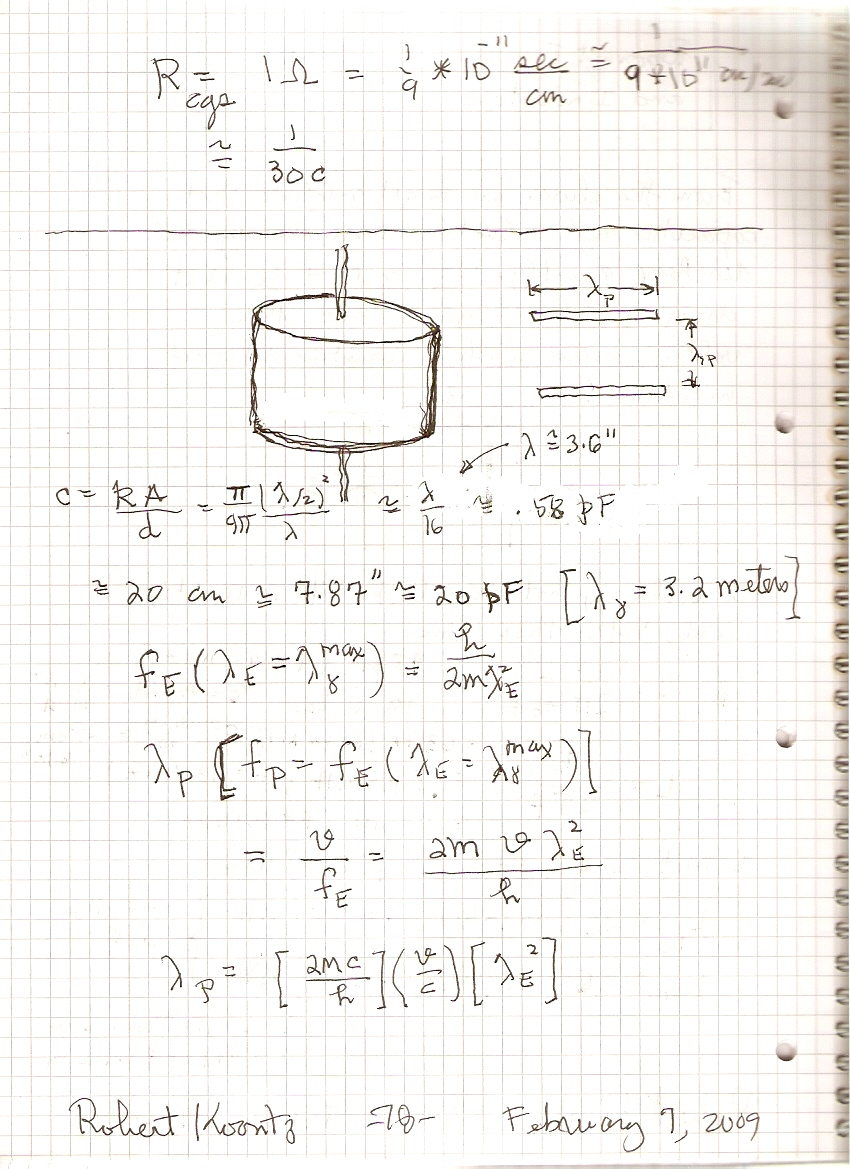 R_cgs = 1 Ω = 1/9 * 10^-11 sec/cm ≅ 1/(9*10^11 cm/sec)
≅ 1/(30c)
λ_P
λ_P
λ ≅ 3.6"
C = RA/d = π/9π (λ/2)^2/λ ≅ λ/16 ≅ .58 pF
≅ 20 cm ≅ 7.87" ≅ 20 pF [λ_γ = 3.2 meters]
f_E (λ_E = λ_γ^max) = h/(2mλ_E^2)
λ_P [f_P = f_E (λ_E = λ_γ^max)]
= v/f_E = 2m v λ_E^2/h
λ_P = [2mc/h] (v/c) [λ_E^2]
Robert Koontz -78- February 9, 2009